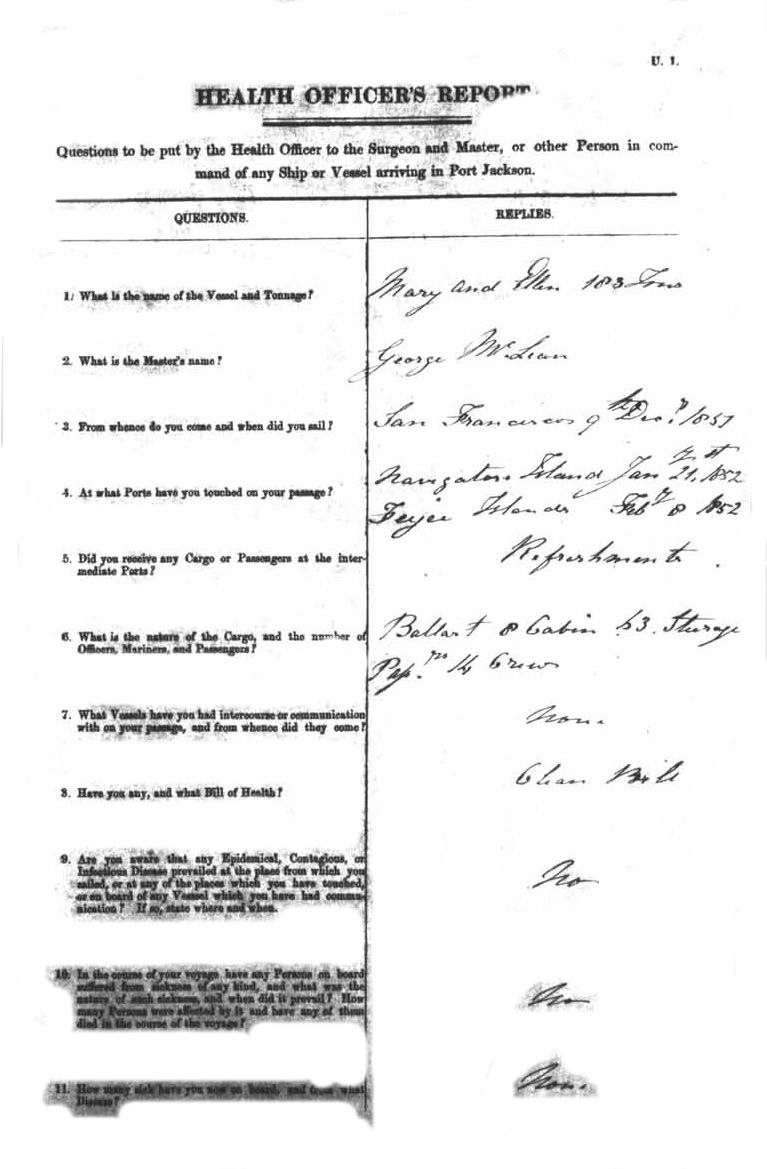 U. 1.
HEALTH OFFICER'S REPORT
Questions to be put by the Health Officer to the Surgeon and Master, or other Person in com-
mand of any Ship or Vessel arriving in Port Jackson.
QUESTIONS.
REPLIES.
1. What is the name of the Vessel and Tonnage?
Mary and Ellen 183 Tons
2. What is the Master's name?
George McLean
3. From whence do you come and when did you sail?
San Francisco 9th Decr 1851
4. At what Ports have you touched on your passage?
Navigators Island Jany 21st, 1852
Feejee Islands Feby 8 1852
5. Did you receive any Cargo or Passengers at the inter-
mediate Ports?
Refreshments
6. What is the nature of the Cargo, and the number of
Officers, Mariners, and Passengers?
Ballast 8 Cabin 63. Sterage
14 Crew
7. What Vessels have you had intercourse or communication
with on your passage, and from whence did they come?
None
8. Have you any, and what Bill of Health?
Clean Bill
9. Are you aware that any Epidemical, Contagious, or
Infectious Disease prevailed at the place from which you
sailed, or at any of the places which you have touched,
or on board of any Vessel which you have had commu-
nication? If so, state where and when.
No
10. In the course of your voyage have any Persons on board
suffered from sickness of any kind, and what was the
nature of such sickness, and when did it prevail? How
many Persons were affected by it and have any of them
died in the course of the voyage?
No
11. How many sick have you now on board, and from what
Disease?
None